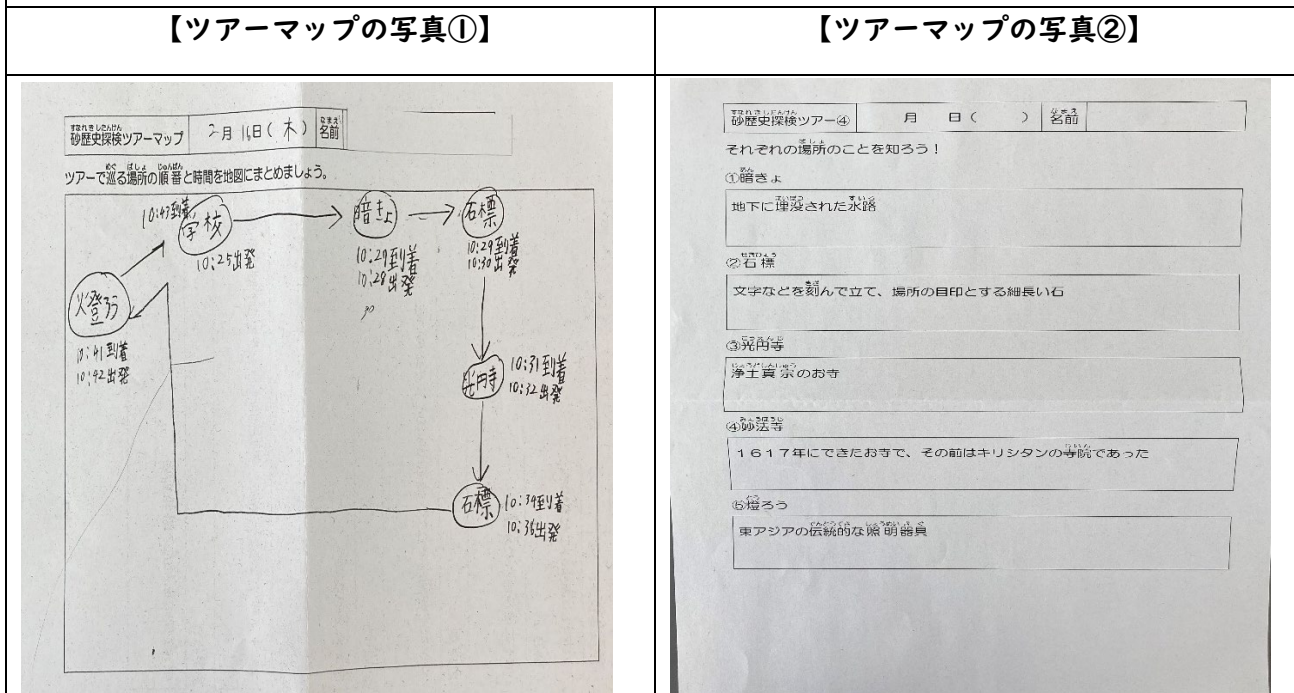 【ツアーマップの写真①】
砂歴史探検ツアーマップ 2月16日(木) 名前
ツアーで巡る場所の順番と時間を地図にまとめましょう。
10:43到着
学校
10:25出発
暗きょ
10:29到着
10:28出発
30
石標
10:29到着
10:30出発
燈ろう
10:41到着
10:42出発
光円寺
10:31到着
10:32出発
石標
10:34到着
10:36出発
【ツアーマップの写真②】
砂歴史探検ツアー④ 月 日( ) 名前
それぞれの場所のことを知ろう!
①暗きょ
地下に埋没された水路
②石標
文字などを刻んで立て、場所の目印とする細長い石
③光円寺
浄土真宗のお寺
④妙法寺
1617年にできたお寺で、その前はキリシタンの寺院であった
⑤燈ろう
東アジアの伝統的な照明器具